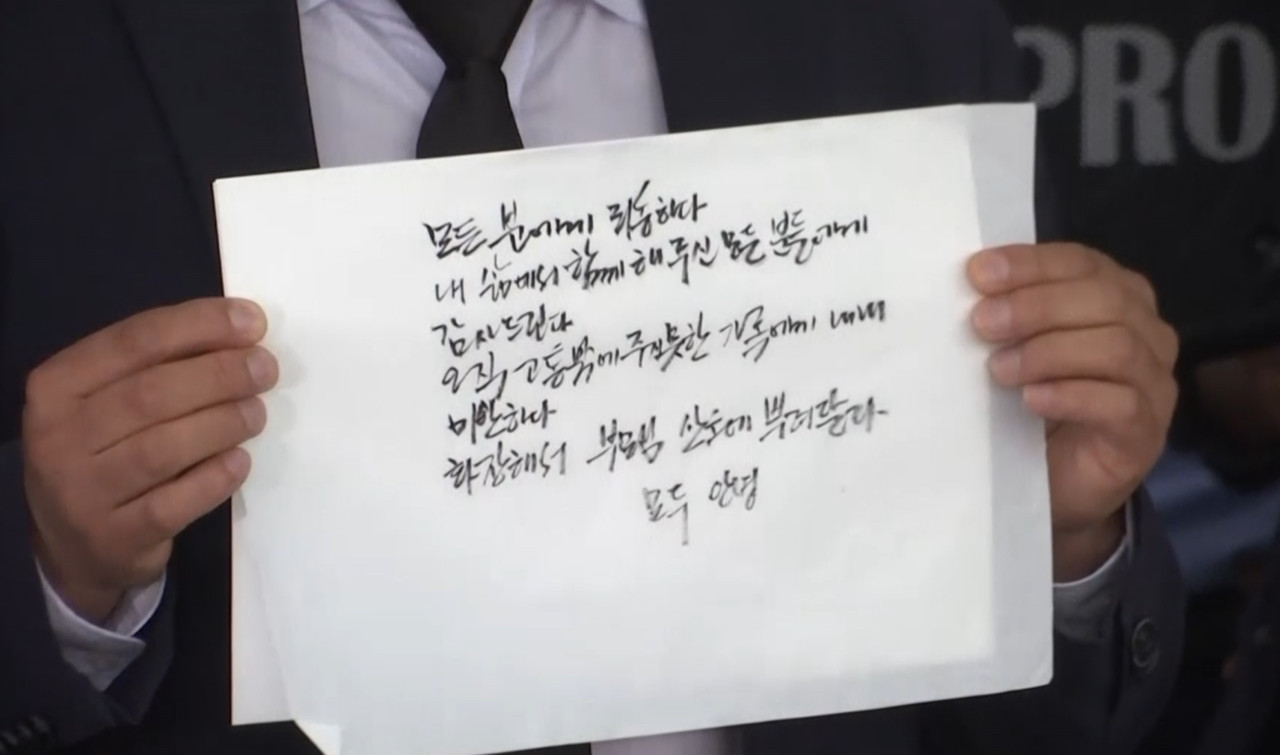 모든 분에게 죄송하다
내 삶에서 함께 해주신 모든 분들에게
감사드린다
오직 고통밖에 주지 못한 가족에게 내내
미안하다
화장해서 부모님 산소에 뿌려달라
모두 안녕
PRO